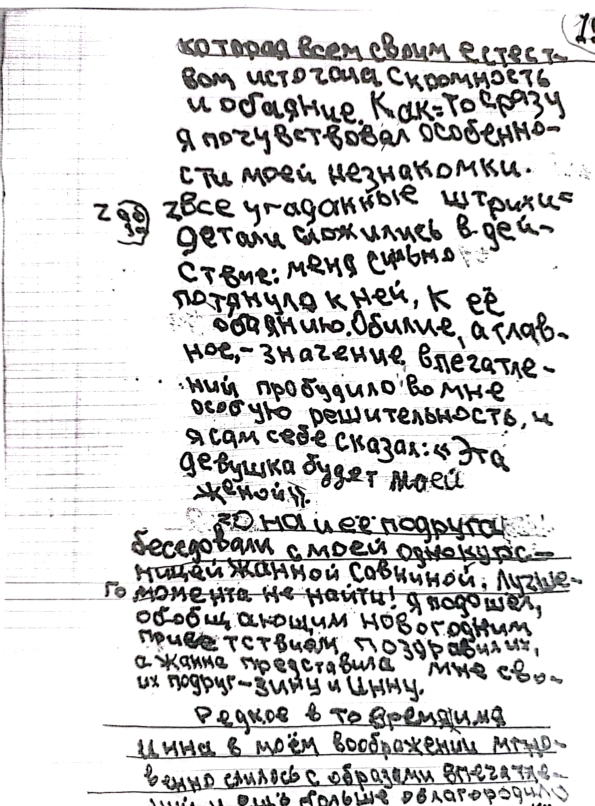 19
которая всем своим естест-
вом источала скромность
и обаяние. Как-то сразу
я почувствовал особенно-
сти моей незнакомки.
Z все угаданные штрихи=
детали сложились в дей-
ствие: меня сильно
потянуло к ней, к её
обаянию. Обилие, а глав-
ное,- значение впечатле-
ний пробудило во мне
особую решительность, и
я сам себе сказал: «Эта
девушка будет моей
женой».
Z Она и её подруга
беседовали с моей однокурс-
ницей Жанной Савкиной. Лучше-
го момента не найти! Я подошел,
обобщающим новогодним
приветствием поздравил их,
а Жанна представила мне сво-
их подруг-Зину и Инну.
Редкое в то время имя
Инна в моём воображении мгно-
венно слилось с образами впечатле-
ний и ещё больше облагородило